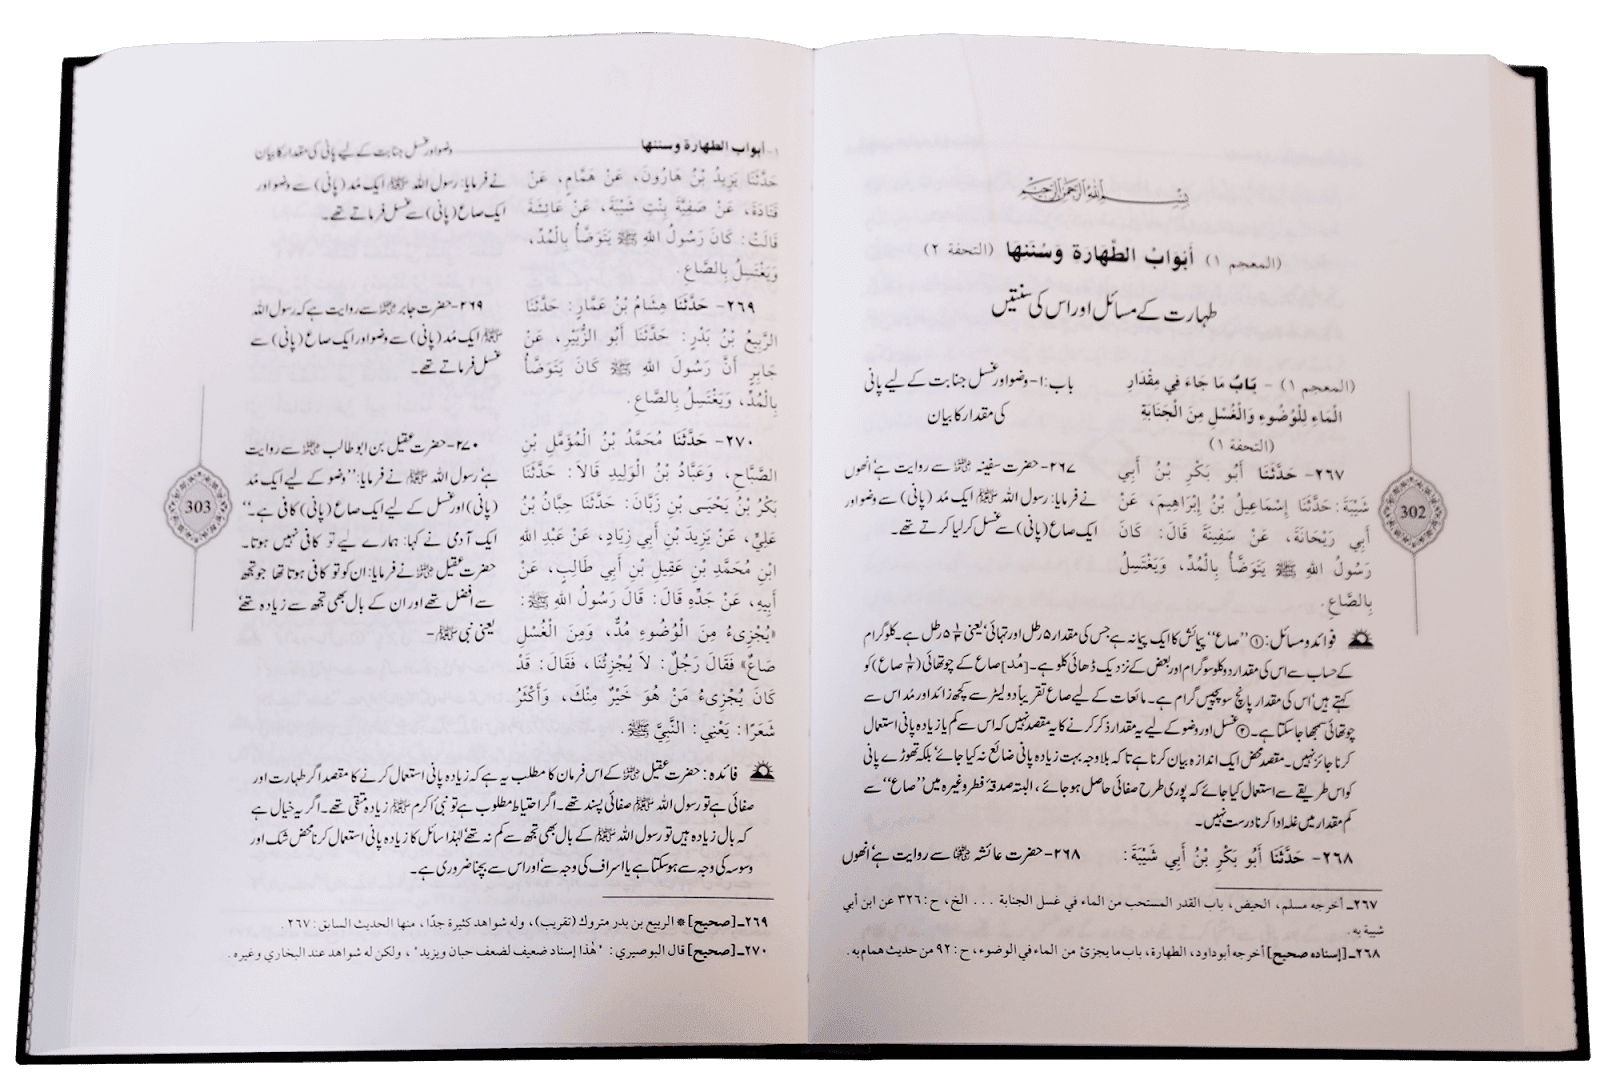 بِسْمِ اللهِ الرَّحْمٰنِ الرَّحِيْمِ
(المعجم ١) أَبْوَابُ الطَّهَارَةِ وَسُنَنِهَا (التحفة ٢)
طہارت کے مسائل اور اس کی سنتیں
(المعجم ١) - بَابُ مَا جَاءَ فِي مِقْدَارِ
الْمَاءِ لِلْوُضُوءِ وَالْغُسْلِ مِنَ الْجَنَابَةِ
(التحفة ١)
باب:١- وضو اور غسل جنابت کے لیے پانی
کی مقدار کا بیان
٢٦٧- حَدَّثَنَا أَبُو بَكْرِ بْنُ أَبِي
شَيْبَةَ: حَدَّثَنَا إِسْمَاعِيلُ بْنُ إِبْرَاهِيمَ، عَنْ
أَبِي رَيْحَانَةَ، عَنْ سَفِينَةَ قَالَ: كَانَ
رَسُولُ اللهِ ﷺ يَتَوَضَّأُ بِالْمُدِّ، وَيَغْتَسِلُ
بِالصَّاعِ.
٢٦٧- حضرت سفینہ ؓ سے روایت ہے، انھوں
نے فرمایا: رسول اللہ ﷺ ایک مُد (پانی) سے وضو اور
ایک صاع (پانی) سے غسل کر لیا کرتے تھے۔
302
فوائد ومسائل: ① ’’صاع‘‘ پیمائش کا ایک پیمانہ ہے جس کی مقدار ۵ رطل اور تہائی، یعنی ۵ ۱/۳ رطل ہے۔ کلوگرام
کے حساب سے اس کی مقدار دو کلو سو گرام اور بعض کے نزدیک ڈھائی کلو ہے۔ [مُد] صاع کے چوتھائی (۱/۴ صاع) کو
کہتے ہیں، اس کی مقدار پانچ سو پچیس گرام ہے۔ مائعات کے لیے صاع تقریباً دو لیٹر سے کچھ زائد اور مُد اس سے
چوتھائی سمجھا جا سکتا ہے۔ ② غسل اور وضو کے لیے یہ مقدار ذکر کرنے کا یہ مقصد نہیں کہ اس سے کم یا زیادہ پانی استعمال
کرنا جائز نہیں۔ مقصد محض ایک اندازہ بیان کرنا ہے تا کہ بلاوجہ بہت زیادہ پانی ضائع نہ کیا جائے، بلکہ تھوڑے پانی
کو اس طریقے سے استعمال کیا جائے کہ پوری طرح صفائی حاصل ہو جائے، البتہ صدقۂ فطر وغیرہ میں ’’صاع‘‘ سے
کم مقدار میں غلہ ادا کرنا درست نہیں۔
٢٦٨- حَدَّثَنَا أَبُو بَكْرِ بْنُ أَبِي شَيْبَةَ:
٢٦٨- حضرت عائشہ ؓ سے روایت ہے، انھوں
٢٦٧ـ أخرجه مسلم، الحيض، باب القدر المستحب من الماء في غسل الجنابة ... الخ، ح:٣٢٦ عن ابن أبي
شيبة به.
٢٦٨ـ [إسناده صحيح] أخرجه أبوداود، الطهارة، باب ما يجزئ من الماء في الوضوء، ح:٩٢ من حديث همام به.
١- أبواب الطهارة وسننها
وضو اور غسل جنابت کے لیے پانی کی مقدار کا بیان
حَدَّثَنَا يَزِيدُ بْنُ هَارُونَ، عَنْ هَمَّامٍ، عَنْ
قَتَادَةَ، عَنْ صَفِيَّةَ بِنْتِ شَيْبَةَ، عَنْ عَائِشَةَ
قَالَتْ: كَانَ رَسُولُ اللهِ ﷺ يَتَوَضَّأُ بِالْمُدِّ،
وَيَغْتَسِلُ بِالصَّاعِ.
نے فرمایا: رسول اللہ ﷺ ایک مُد (پانی) سے وضو اور
ایک صاع (پانی) سے غسل فرماتے تھے۔
٢٦٩- حَدَّثَنَا هِشَامُ بْنُ عَمَّارٍ: حَدَّثَنَا
الرَّبِيعُ بْنُ بَدْرٍ: حَدَّثَنَا أَبُو الزُّبَيْرِ، عَنْ
جَابِرٍ أَنَّ رَسُولَ اللهِ ﷺ كَانَ يَتَوَضَّأُ
بِالْمُدِّ، وَيَغْتَسِلُ بِالصَّاعِ.
٢٦٩- حضرت جابر ؓ سے روایت ہے کہ رسول اللہ
ﷺ ایک مُد (پانی) سے وضو اور ایک صاع (پانی) سے
غسل فرماتے تھے۔
٢٧٠- حَدَّثَنَا مُحَمَّدُ بْنُ الْمُؤَمَّلِ بْنِ
الصَّبَّاحِ، وَعَبَّادُ بْنُ الْوَلِيدِ قَالَا: حَدَّثَنَا
بَكْرُ بْنُ يَحْيَى بْنِ زَبَّانَ: حَدَّثَنَا حِبَّانُ بْنُ
عَلِيٍّ، عَنْ يَزِيدَ بْنِ أَبِي زِيَادٍ، عَنْ عَبْدِ اللهِ
ابْنِ مُحَمَّدِ بْنِ عَقِيلِ بْنِ أَبِي طَالِبٍ، عَنْ
أَبِيهِ، عَنْ جَدِّهِ قَالَ: قَالَ رَسُولُ اللهِ ﷺ:
«يُجْزِىءُ مِنَ الْوُضُوءِ مُدٌّ، وَمِنَ الْغُسْلِ
صَاعٌ» فَقَالَ رَجُلٌ: لَا يُجْزِئُنَا، فَقَالَ: قَدْ
كَانَ يُجْزِىءُ مَنْ هُوَ خَيْرٌ مِنْكَ، وَأَكْثَرُ
شَعَرًا: يَعْنِي: النَّبِيَّ ﷺ.
٢٧٠- حضرت عقیل بن ابو طالب ؓ سے روایت
ہے، رسول اللہ ﷺ نے فرمایا: ’’وضو کے لیے ایک مُد
(پانی) اور غسل کے لیے ایک صاع (پانی) کافی ہے۔‘‘
ایک آدمی نے کہا: ہمارے لیے تو کافی نہیں ہوتا۔
حضرت عقیل ؓ نے فرمایا: ان کو تو کافی ہوتا تھا جو تجھ
سے افضل تھے اور ان کے بال بھی تجھ سے زیادہ تھے،
یعنی نبی ﷺ۔
303
فائدہ: حضرت عقیل ؓ کے اس فرمان کا مطلب یہ ہے کہ زیادہ پانی استعمال کرنے کا مقصد اگر طہارت اور
صفائی ہے تو رسول اللہ ﷺ صفائی پسند تھے۔ اگر احتیاط مطلوب ہے تو نبی اکرم ﷺ زیادہ متقی تھے۔ اگر یہ خیال ہے
کہ بال زیادہ ہیں تو رسول اللہ ﷺ کے بال بھی تجھ سے کم نہ تھے، لہٰذا سائل کا زیادہ پانی استعمال کرنا محض شک اور
وسوسہ کی وجہ سے ہو سکتا ہے یا اسراف کی وجہ سے، اور اس سے بچنا ضروری ہے۔
٢٦٩ـ [صحيح] * الربيع بن بدر متروك (تقريب)، وله شواهد كثيرة جدًا، منها الحديث السابق:٢٦٧.
٢٧٠ـ [صحيح] قال البوصيري: "هٰذا إسناد ضعيف لضعف حبان ويزيد"، ولكن له شواهد عند البخاري وغيره.